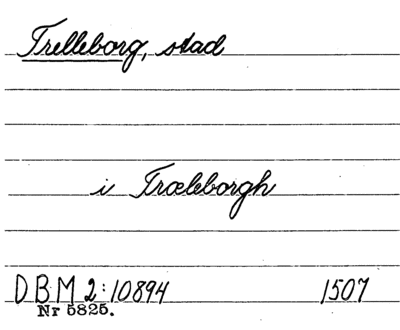 Trelleborg, stad
i Træleborgh
DBM 2:10894 1507
Nr 5825.